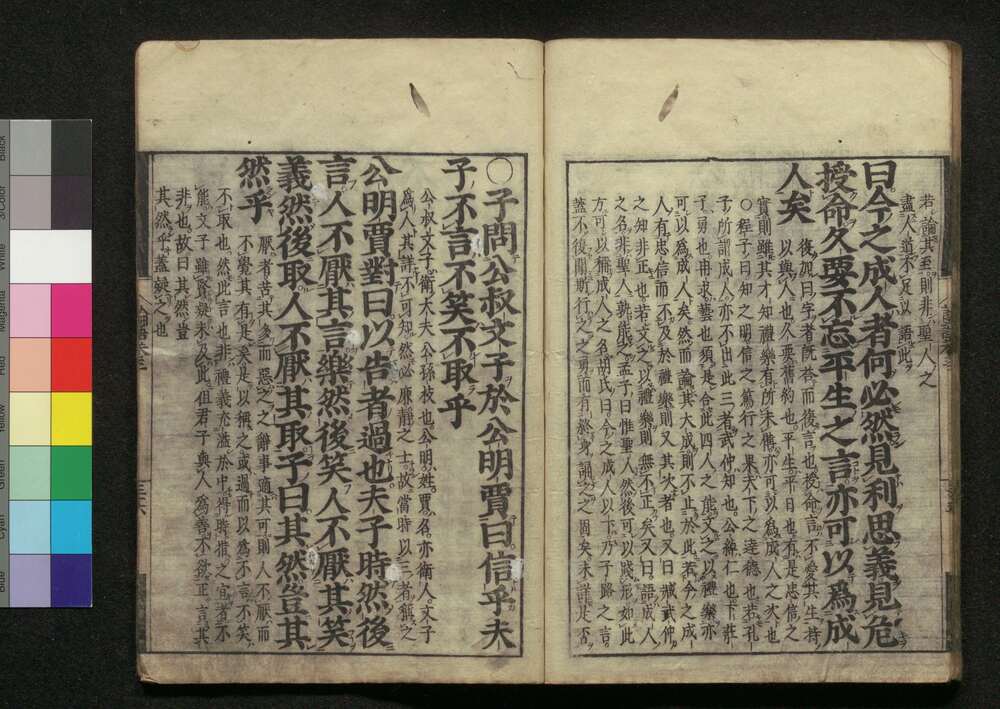 若論其至則非聖人之
盡人道不足以語此
曰今之成人者何必然見利思義見危
授命久要不忘平生之言亦可以爲成
人矣
復加曰字者既答而復言也授命言不愛其生持
以與人也久要舊約也平生平日也有是忠信之
實則雖其才知禮樂有所未備亦可以爲成人之次也
○程子曰知之明信之篤行之果天下之達德也若孔
子所謂成人亦不出此三者武仲知也公綽仁也卞莊
子勇也冉求藝也須是合此四人之能文之以禮樂亦
可以爲成人矣然而論其大成則不止於此若今之成
人有忠信而不及於禮樂則又其次者也又曰臧武仲
之知非正也若文之以禮樂則無不正矣又曰語成人
之名非聖人孰能之孟子曰惟聖人然後可以踐形如此
方可以稱成人之名胡氏曰今之成人以下乃子路之言
蓋不復聞斯行之之勇而有終身誦之之固矣未詳是否
○子問公叔文子於公明賈曰信乎夫
子不言不笑不取乎
公叔文子衛大夫公孫枝也公明姓賈名亦衛人文子
爲人其詳不可知然必廉靜之士故當時以三者稱之
公明賈對曰以告者過也夫子時然後
言人不厭其言樂然後笑人不厭其笑
義然後取人不厭其取子曰其然豈其
然乎
厭者苦其多而惡之之辭事適其可則人不厭而
不覺其有是矣是以稱之或過而以爲不言不笑
不取也然此言也非禮義充溢於中得時措之宜者不
能文子雖賢疑未及此但君子與人爲善不欲正言其
非也故曰其然豈
其然乎蓋疑之也
Black
3/Color
White
Magenta
Red
Yellow
Green
Cyan
Blue